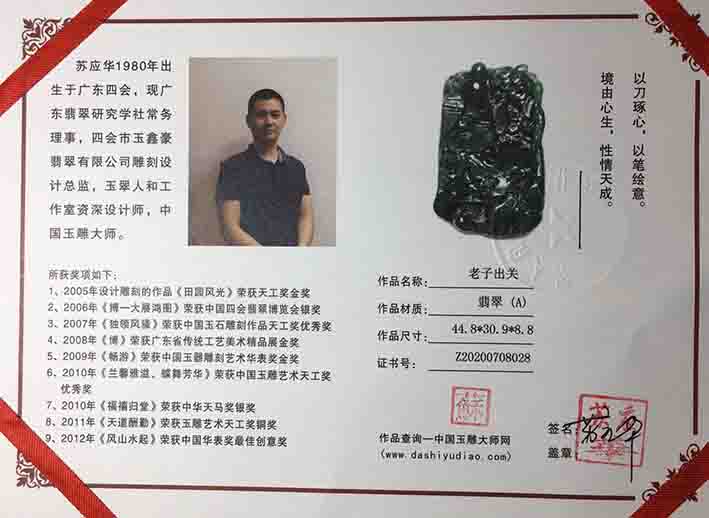 苏应华1980年出
生于广东四会，现广
东翡翠研究学社常务
理事，四会市玉鑫豪
翡翠有限公司雕刻设
计总监，玉翠人和工
作室资深设计师，中
国玉雕大师。
以刀琢心，以笔绘意。
境由心生，性情天成。
所获奖项如下：
1、2005年设计雕刻的作品《田园风光》荣获天工奖金奖
2、2006年《搏一大展鸿图》荣获中国四会翡翠博览会银奖
3、2007年《独领风骚》荣获中国玉石雕刻作品天工奖优秀奖
4、2008年《博》荣获广东省传统工艺美术精品展金奖
5、2009年《畅游》荣获中国玉器雕刻艺术华表奖金奖
6、2010年《兰馨雅溢、蝶舞芳华》荣获中国玉雕艺术天工奖
优秀奖
7、2010年《福禧归堂》荣获中华天马奖银奖
8、2011年《天道酬勤》荣获玉雕艺术天工奖铜奖
9、2012年《风山水起》荣获中国华表奖最佳创意奖
作品名称：老子出关
作品材质：翡翠 (A)
作品尺寸：44.8*30.9*8.8
证书号：Z20200708028
作品查询—中国玉雕大师网
(www.dashiyudiao.com)
签名：
盖章：